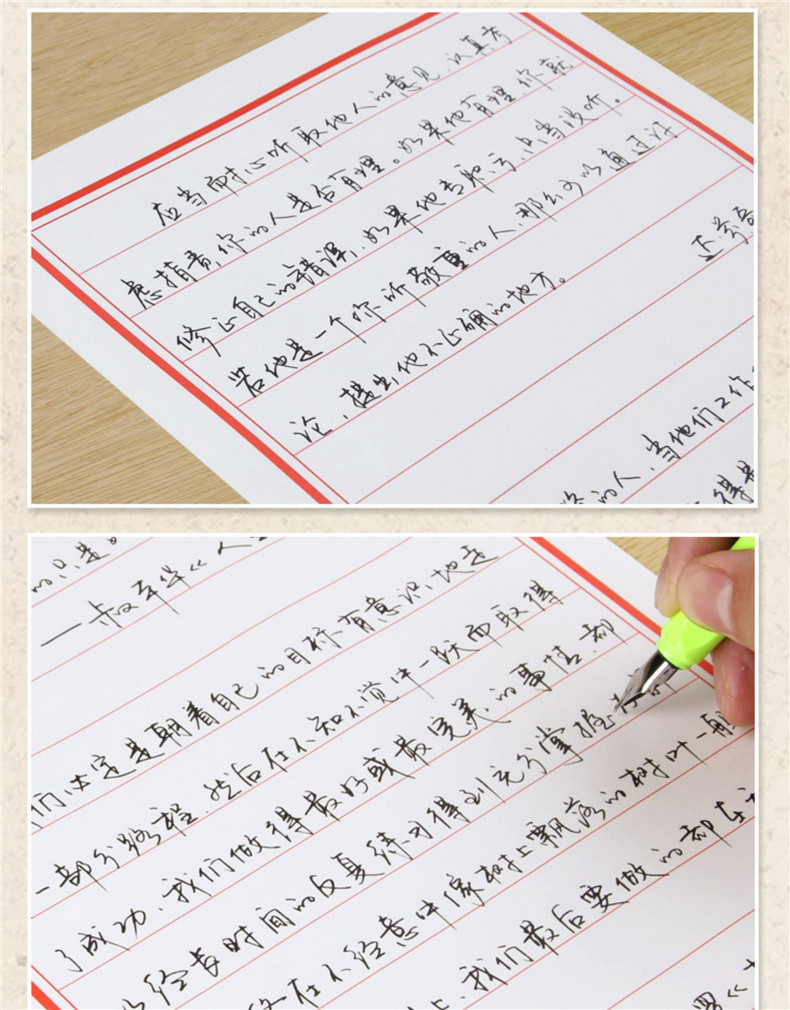 应当耐心听取他人的意见,认真考
虑指责你的人是否有理。如果他有理,你就
修正自己的错误,如果他去脸亏,只当没听。
若他是一个你所敬重的人,那么可以通过讨
论,提出他不正确的地方。
的人,当他们工作
的只是
一叔本华《人生
们,必定是朝着自己的目标有意识地走
一部分路程,然后在不知不觉中一跃而取得
了成功,我们做得最好或最完美的事情,都
经长时间的反复练习得到充分掌握
在不经意中像树上飘落的树叶一般
上,我们最后要做的都在